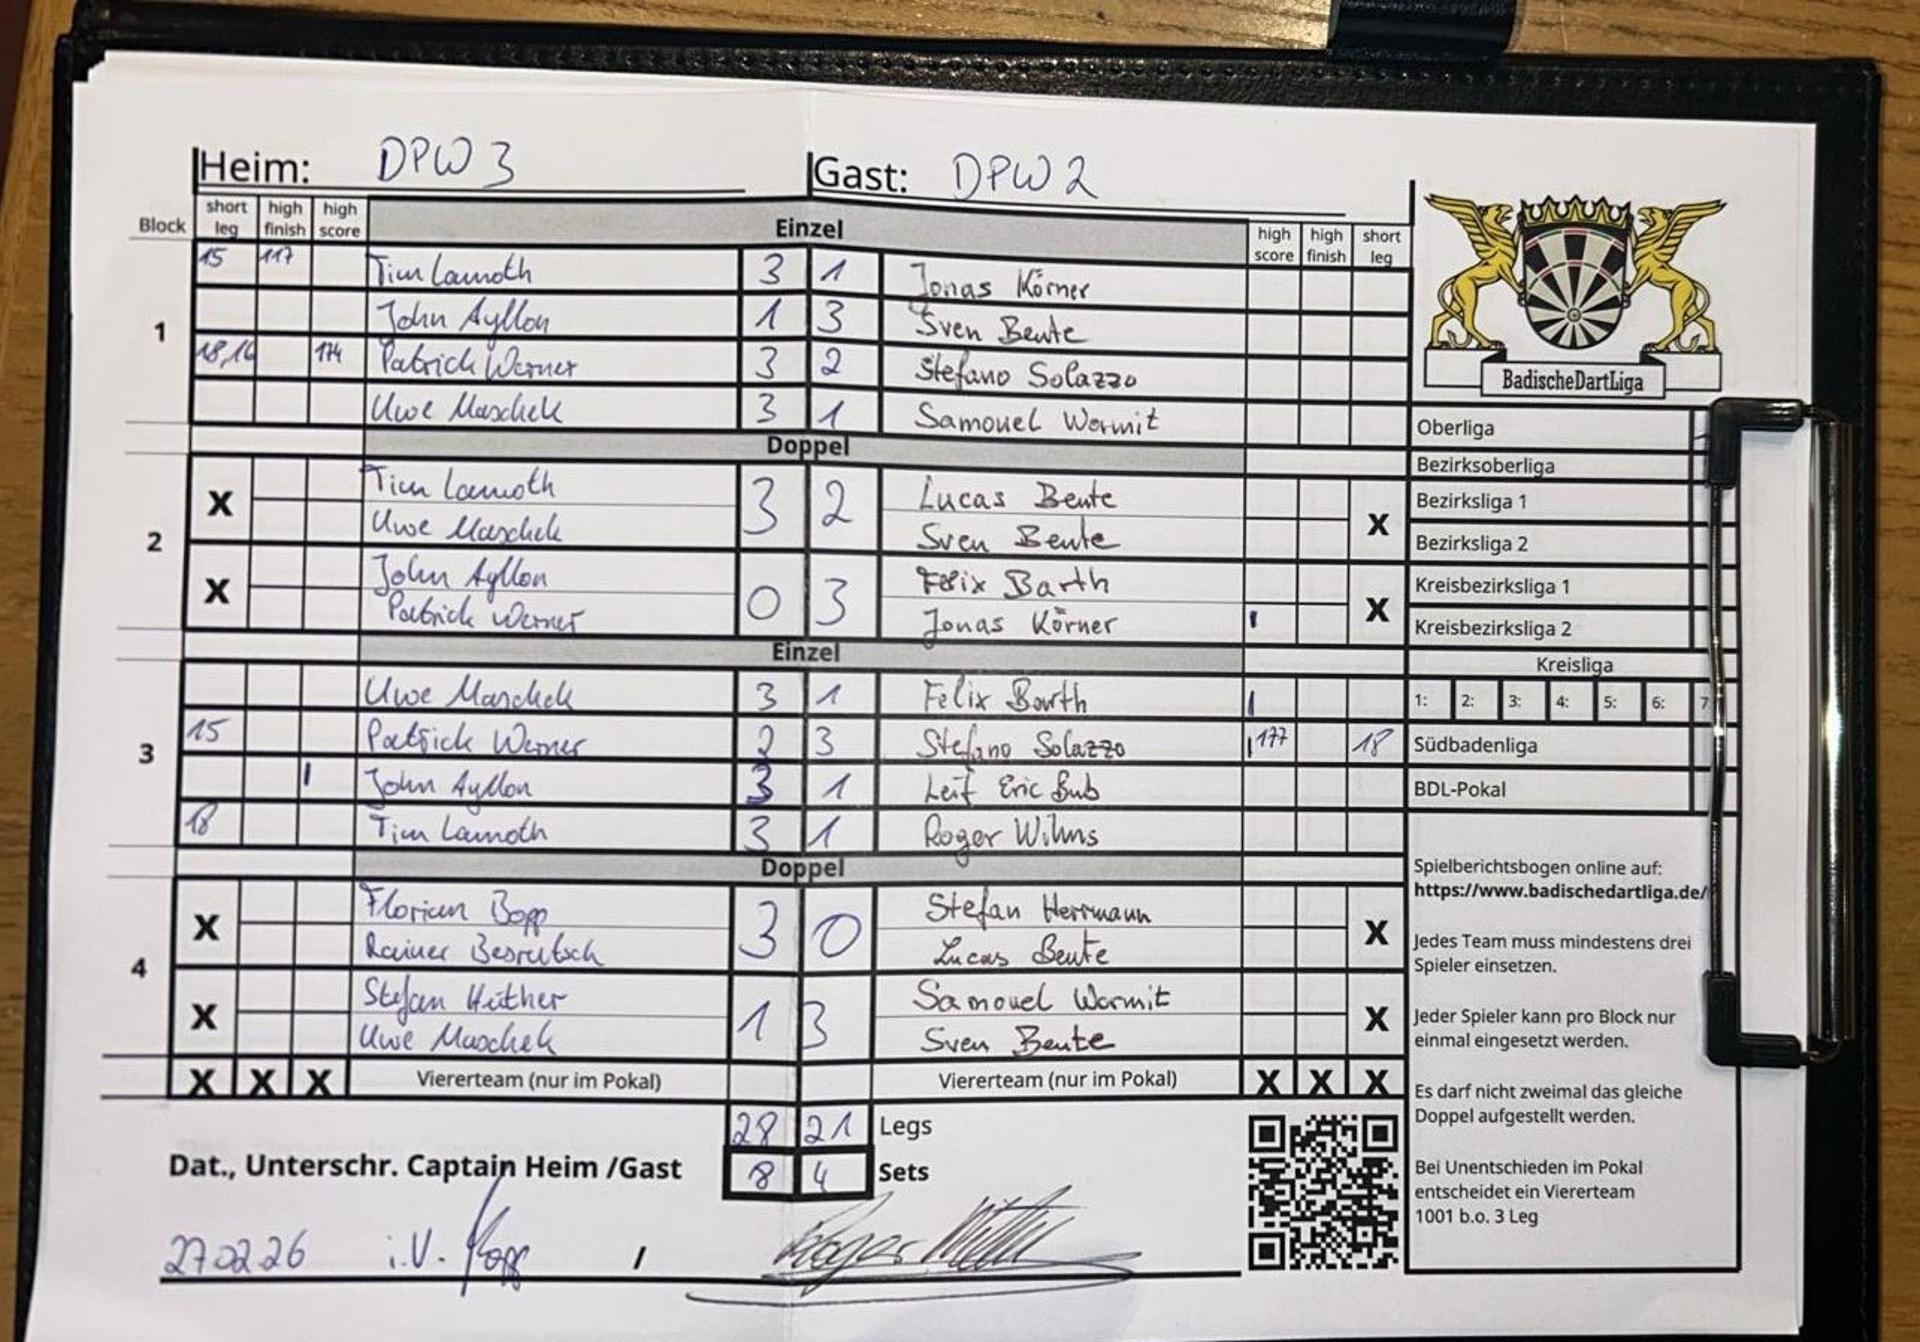 Heim: DPW 3 Gast: DPW 2
Block short leg high finish high score Einzel high score high finish short leg
15 117 Tim Lamoth 3 1 Jonas Körner
1 John Ayllon 1 3 Sven Bente
18,16 174 Patrick Werner 3 2 Stefano Solazzo
Uwe Maschek 3 1 Samouel Wormit
Doppel
2
X Tim Lamoth 3 2 Lucas Bente X
Uwe Maschek Sven Bente
X John Ayllon 0 3 Felix Barth X
Patrick Werner Jonas Körner I
Einzel
3
Uwe Maschek 3 1 Felix Barth I
15 Patrick Werner 2 3 Stefano Solazzo I 177 18
I John Ayllon 3 1 Leif Eric Bub
18 Tim Lamoth 3 1 Roger Wilms
Doppel
4
X Florian Bopp 3 0 Stefan Herrmann X
Rainer Lucas Bente
X Stefan Hüther 1 3 Samouel Wormit X
Uwe Maschek Sven Bente
X X X Viererteam (nur im Pokal) Viererteam (nur im Pokal) X X X
28 21 Legs
8 4 Sets
Dat., Unterschr. Captain Heim /Gast
27.02.26 i.V. Bopp / Roger
BadischeDartLiga
Oberliga
Bezirksoberliga
Bezirksliga 1
Bezirksliga 2
Kreisbezirksliga 1
Kreisbezirksliga 2
Kreisliga
1: 2: 3: 4: 5: 6: 7
Südbadenliga
BDL-Pokal
Spielberichtsbogen online auf:
https://www.badischedartliga.de/
Jedes Team muss mindestens drei
Spieler einsetzen.
Jeder Spieler kann pro Block nur
einmal eingesetzt werden.
Es darf nicht zweimal das gleiche
Doppel aufgestellt werden.
Bei Unentschieden im Pokal
entscheidet ein Viererteam
1001 b.o. 3 Leg